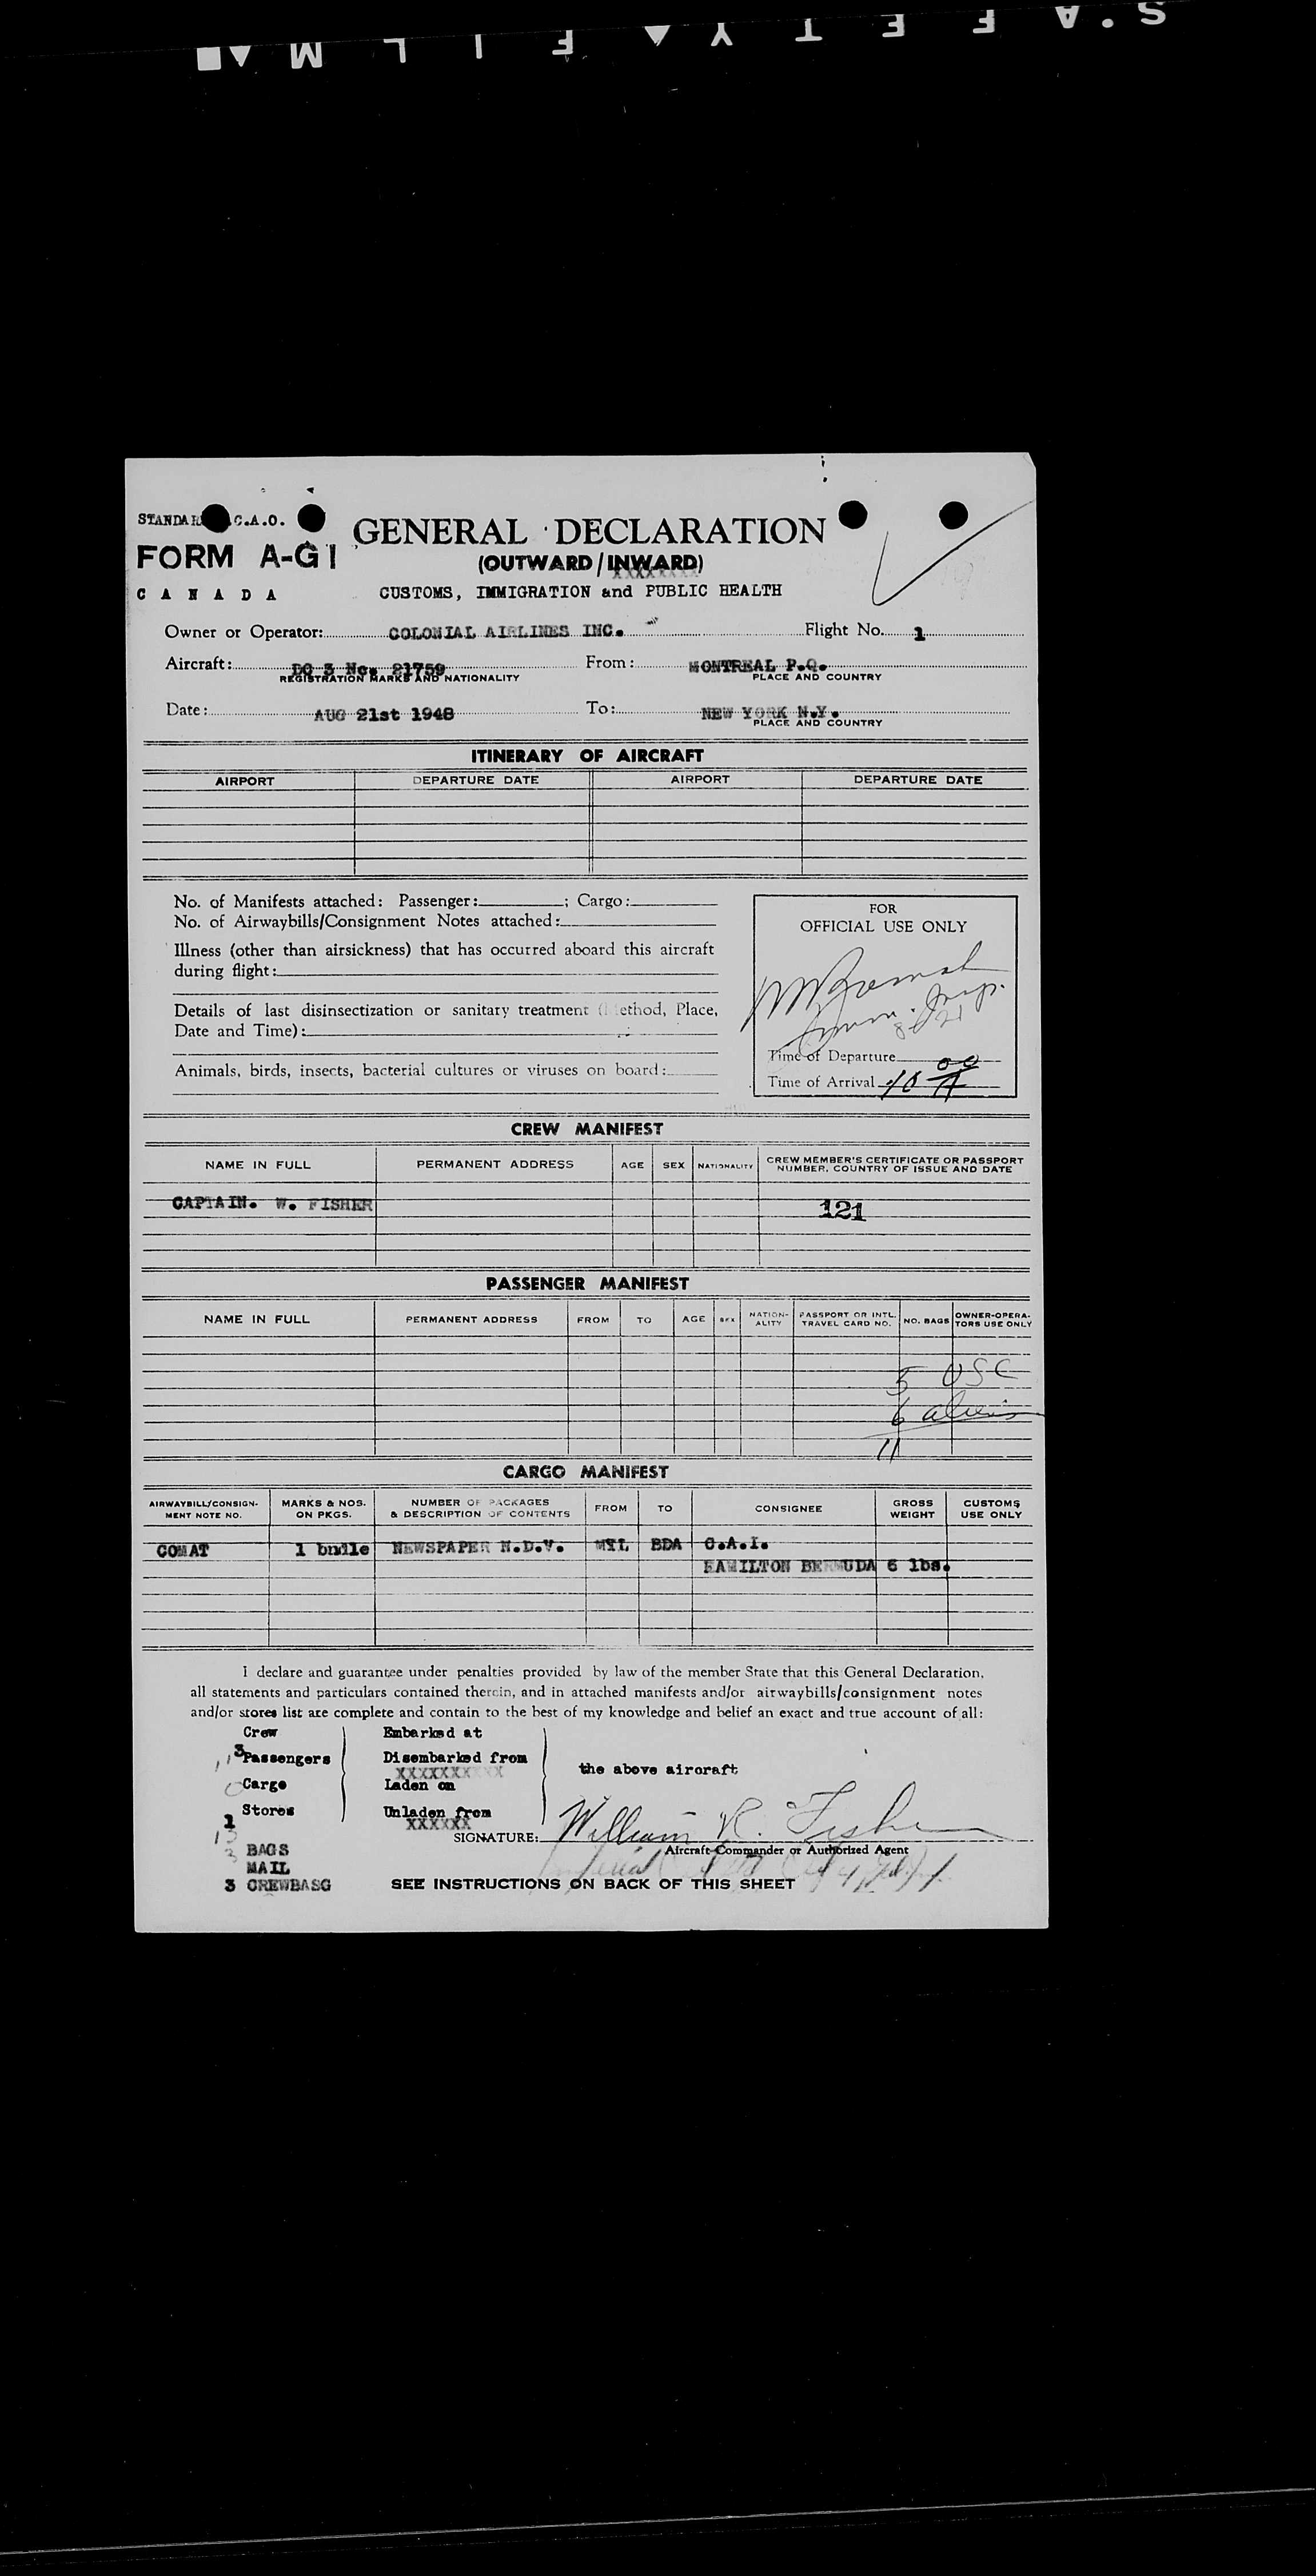 S.AFETY▲FILM▲■
STANDA C.A.O.
FORM A-G1
CANADA
GENERAL DECLARATION
(OUTWARD/INWARD)
XXXXXXXX
CUSTOMS, IMMIGRATION and PUBLIC HEALTH
Owner or Operator: COLONIAL AIRLINES INC. Flight No. 1
Aircraft: DC 3 No. 21759 From: MONTREAL P.Q.
REGISTRATION MARKS AND NATIONALITY PLACE AND COUNTRY
Date: AUG 21st 1948 To: NEW YORK N.Y.
PLACE AND COUNTRY
ITINERARY OF AIRCRAFT
AIRPORT DEPARTURE DATE AIRPORT DEPARTURE DATE
No. of Manifests attached: Passenger: ; Cargo:
No. of Airwaybills/Consignment Notes attached:
Illness (other than airsickness) that has occurred aboard this aircraft
during flight:
Details of last disinsectization or sanitary treatment (Method, Place,
Date and Time):
Animals, birds, insects, bacterial cultures or viruses on board:
FOR
OFFICIAL USE ONLY
Imm. Insp.
Time of Departure
Time of Arrival 10 00 A
CREW MANIFEST
NAME IN FULL PERMANENT ADDRESS AGE SEX NATIONALITY CREW MEMBER'S CERTIFICATE OR PASSPORT
NUMBER, COUNTRY OF ISSUE AND DATE
CAPTAIN. W. FISHER 121
PASSENGER MANIFEST
NAME IN FULL PERMANENT ADDRESS FROM TO AGE SEX NATION-
ALITY PASSPORT OR INTL.
TRAVEL CARD NO. NO. BAGS OWNER-OPERA-
TORS USE ONLY
5 USC
6 aliens
11
CARGO MANIFEST
AIRWAYBILL/CONSIGN-
MENT NOTE NO. MARKS & NOS.
ON PKGS. NUMBER OF PACKAGES
& DESCRIPTION OF CONTENTS FROM TO CONSIGNEE GROSS
WEIGHT CUSTOMS
USE ONLY
COMAT 1 bndle NEWSPAPER N.D.V. MTL BDA C.A.I.
HAMILTON BERMUDA 6 lbs.
I declare and guarantee under penalties provided by law of the member State that this General Declaration,
all statements and particulars contained therein, and in attached manifests and/or airwaybills/consignment notes
and/or stores list are complete and contain to the best of my knowledge and belief an exact and true account of all:
Crew Embarked at
3
11 Passengers Disembarked from
XXXXXXXXXX
the above aircraft
0 Cargo Laden on
1 Stores Unladen from
XXXXXX
SIGNATURE: William R. Fisher
Aircraft Commander or Authorized Agent
13 BAGS
3 MAIL
3 CREWBASG
SEE INSTRUCTIONS ON BACK OF THIS SHEET